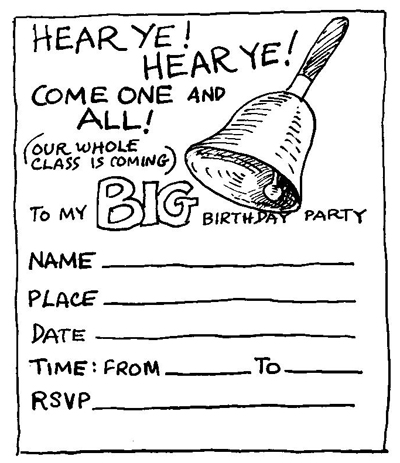 HEAR YE!
HEAR YE!
COME ONE AND
ALL!
(OUR WHOLE
CLASS IS COMING)
TO MY BIG BIRTHDAY PARTY
NAME
PLACE
DATE
TIME: FROM TO
RSVP